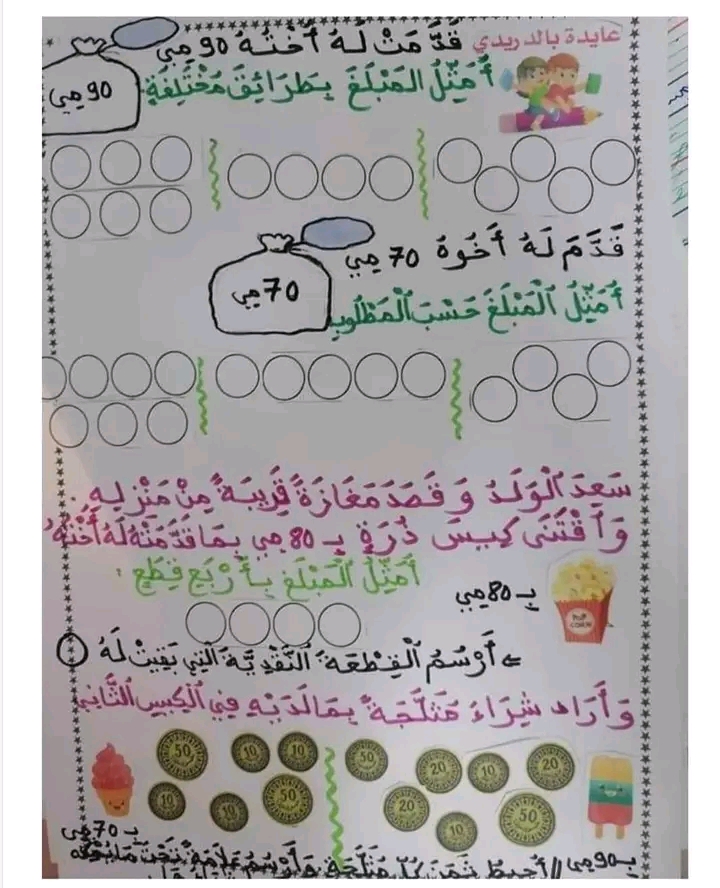 عايدة بالدريدي
قَدَّمَتْ لَهُ أُخْتُهُ 90 مي
90 مي
أُمَثِّلُ المَبْلَغَ بِطَرَائِقَ مُخْتَلِفَةٍ
قَدَّمَ لَهُ أَخُوهُ 70 مي
70 مي
أُمَثِّلُ الْمَبْلَغَ حَسْبَ الْمَطْلُوبِ
سَعِدَ الْوَلَدُ وَ قَصَدَ مَغَازَةً قَرِيبَةً مِنْ مَنْزِلِهِ.
وَ اقْتَنَى كِيسَ ذُرَةٍ بِـ 80 مي بِمَا قَدَّمَتْهُ لَهُ أُخْتُهُ
أُمَثِّلُ الْمَبْلَغَ بِأَرْبَعِ قِطَعٍ:
بِـ 80 مي
POP CORN
أَرْسُمُ الْقِطْعَةَ النَّقْدِيَّةَ الَّتِي بَقِيَتْ لَهُ
وَ أَرَادَ شِرَاءَ مُثَلَّجَةً بِمَا لَدَيْهِ فِي الْكِيسِ الثَّانِي
50 10 10 50 20 10 20
10 10 50 20 10 50
بِـ 70 مي
بِـ 90 مي // أُحِيطُ ثَمَنَ كُلِّ مُثَلَّجَةٍ وَ أَرْسُمُ عَلَامَةً تَحْتَ مَا